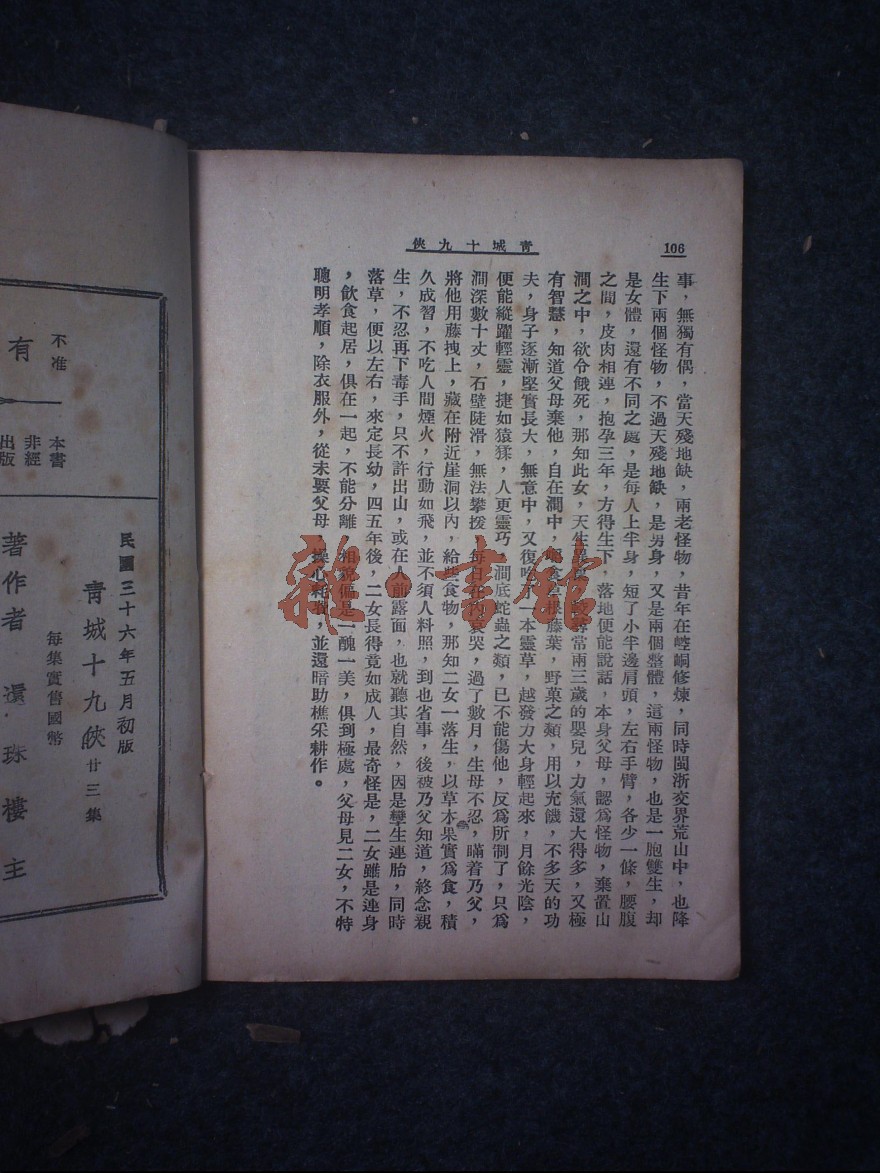 106
青城十九俠
事，無獨有偶，當天殘地缺，兩老怪物，昔年在崆峒修煉，同時閩浙交界荒山中，也降
生下兩個怪物，不過天殘地缺，是男身，又是兩個整體，這兩怪物，也是一胞雙生，却
是女體，還有不同之處，是每人上半身，短了小半邊肩頭，左右手臂，各少一條，腰腹
之間，皮肉相連，抱孕三年，方得生下，落地便能說話，本身父母，認爲怪物，棄置山
澗之中，欲令餓死，那知此女，天生異 尋常兩三歲的嬰兒，力氣還大得多，又極
有智慧，知道父母棄他，自在澗中， 食 根藤葉，野菓之類，用以充饑，不多天的功
夫，身子逐漸堅實長大，無意中，又復吃了一本靈草，越發力大身輕起來，月餘光陰，
便能縱躍輕靈，捷如猿猱，人更靈巧，澗底蛇蟲之類，已不能傷他，反爲所制了，只爲
澗深數十丈，石壁陡滑，無法攀援，每日在內哀哭，過了數月，生母不忍，瞞着乃父，
將他用藤拽上，藏在附近崖洞以內，給些食物，那知二女一落生，以草木果實爲食，積
久成習，不吃人間煙火，行動如飛，並不須人料照，到也省事，後被乃父知道，終念親
生，不忍再下毒手，只不許出山，或在人前露面，也就聽其自然，因是孿生連胎，同時
落草，便以左右，來定長幼，四五年後，二女長得竟如成人，最奇怪是，二女雖是連身
，飲食起居，俱在一起，不能分離 相貌偏是一醜一美，俱到極處，父母見二女，不特
聰明孝順，除衣服外，從未要父母 操心耗 ，並還暗助樵采耕作。
雜·書館
不准
有
本書
非經
出版
民國三十六年五月初版
青城十九俠 廿三集
每集實售國幣
著作者 還珠樓主